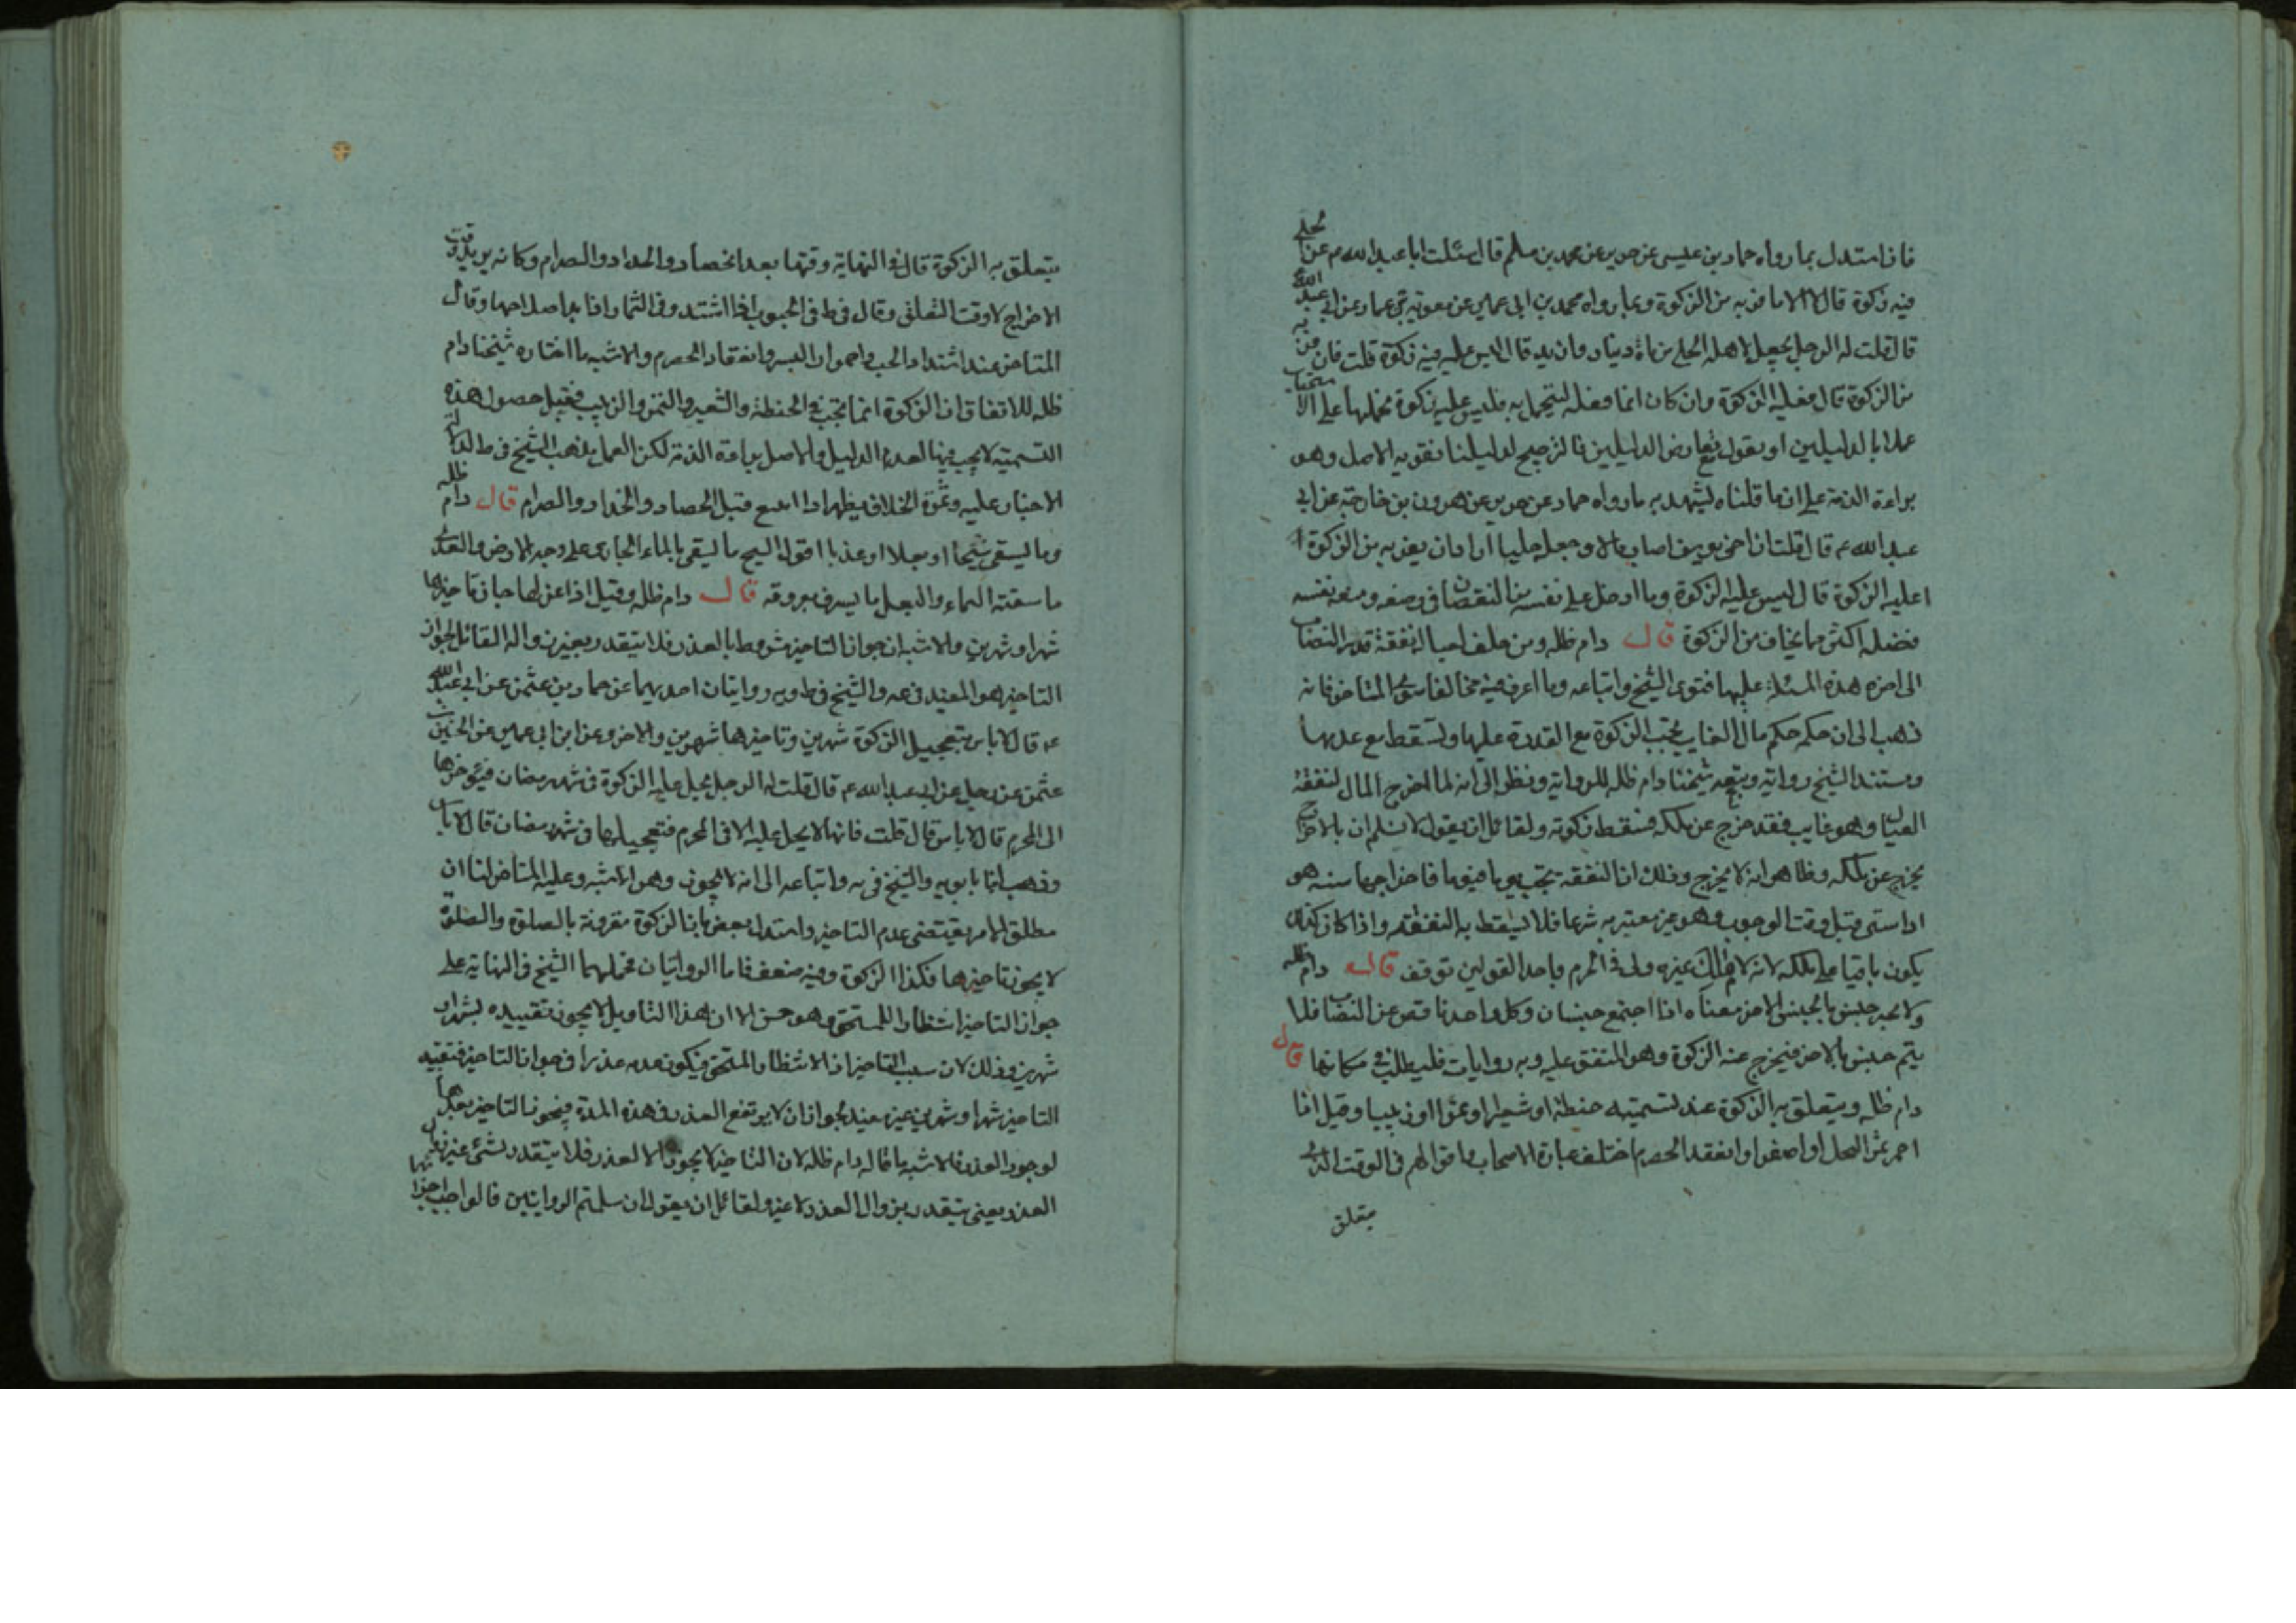 فان استدل بما رواه حماد بن عيسى عن حريز عن محمد بن مسلم قال سئلت ابا عبد الله ع عن الحلي
فيه زكوة قال لا الا ما فر به من الزكوة وبما رواه محمد بن ابي عمير عن معوية بن عمار عن ابي عبد الله
قال قلت له الرجل يجعل لاهله الحلي من مأة دينار وان يد قال ليس عليه فيه زكوة قلت فان فر به
من الزكوة قال فعليه الزكوة وان كان انما فعله ليتجمل به فليس عليه زكوة نحملها على الاستحباب
عملا بالدليلين او نقول تعارض الدليلين فالترجيح لدليلنا نقويه الاصل وهو
براءة الذمة على ان ما قلناه يشهد به ما رواه حماد عن حريز عن هرون بن خارجة عن ابي
عبد الله ع قال قلت ان اخي يوسف اصاب مالا وجعل حليا اراد ان يفر به من الزكوة ا
اعليه الزكوة قال ليس عليه الزكوة وما ادخل على نفسه من النقصان في وضعه ومنعه نفسه
فضله اكثر مما يخاف من الزكوة قال دام ظله ومن خلف لعياله نفقة قدر النصاب
الى اخره هذه المسئلة عليها فتوى الشيخ واتباعه وما اعرف فيه مخالفا سوى المتاخر فانه
ذهب الى ان حكمه حكم مال الغايب تجب الزكوة مع القدرة عليها وتسقط مع عدمها
ومستند الشيخ رواية وتبعه شيخنا دام ظله للرواية ونظر الى انه لما اخرج المال لنفقة
العيال وهو غايب فقد خرج عن ملكه فسقط زكوته ولقائل ان يقول لا نسلم ان بالاخراج
يخرج عن ملكه وظاهر انه لا يخرج وذلك ان النفقة تجب يوما فيوما فاخراجها سنة هو
اداء شيء قبل وقت الوجوب وهو غير معتبر به شرعا فلا يسقط به النفقة واذا كان كذلك
يكون باقيا على ملكه لانه لا مالك غيره ولي في الجزم باحد القولين توقف قال دام ظله
ولا يجبر جنس بالجنس الاخر معناه اذا اجتمع جنسان وكل واحد ناقص عن النصاب فلا
يتم جنس بالاخر فيخرج عنه الزكوة وهو المتفق عليه وبه روايات فليطلب في مكانها قال
دام ظله ويتعلق به الزكوة عند تسميته حنطة او شعيرا او تمرا او زبيبا وقيل اذا
احمر ثمر النخل او اصفر او انعقد الحصرم اختلف عبارة الاصحاب واقوالهم في الوقت الذي
يتعلق
يتعلق به الزكوة قال في النهاية وقتها بعد الحصاد والجداد والصرام وكانه يريد وقت
الاخراج لا وقت التعلق وقال في ط في الحبوب اذا اشتد وفي الثمار اذا بدا صلاحها وقال
المتاخر عند اشتداد الحب واحمرار البسر وانعقاد الحصرم والاشبه ما اختاره شيخنا دام
ظله للاتفاق ان الزكوة انما تجب في الحنطة والشعير والتمر والزبيب فقبل حصول هذه
التسمية لا يجب فيها لعدم الدليل والاصل براءة الذمة لكن العمل بمذهب الشيخ في ط لدلالة
الاخبار عليه وثمرة الخلاف يظهر اذا ابيع قبل الحصاد والجداد والصرام قال دام ظله
وما يسقى سيحا او بعلا او عذيا اقول السيح ما يسقى بالماء الجاري على وجه الارض والعذي
ما سقته السماء والبعل ما يشرب بعروقه قال دام ظله وقيل اذا عزلها جاز تاخيرها
شهرا وشهرين والاشبه ان جواز التاخير مشروط بالعذر فلا يتقدر بغير زواله القائل بجواز
التاخير هو المفيد في عه والشيخ في ط وبه روايتان احديهما عن حماد بن عثمن عن ابي عبد الله
ع قال لا باس بتعجيل الزكوة شهرين وتاخيرها شهرين والاخرى عن ابن ابي عمير عن الحسين بن
عثمن عن رجل عن ابي عبد الله ع قال قلت له الرجل يحل عليه الزكوة في شهر رمضان فيؤخرها
الى المحرم قال لا باس قال قلت فانها لا يحل عليه الا في المحرم فتعجيلها في شهر رمضان قال لا باس
وذهب ابنا بابويه والشيخ في يه واتباعه الى انه لا يجوز وهو الاشبه وعليه المتاخر لنا ان
مطلق الامر يقتضي عدم التاخير واستدل بعض بان الزكوة مقرونة بالصلوة والصلوة
لا يجوز تاخيرها فكذا الزكوة وفيه ضعف فاما الروايتان فحملهما الشيخ في النهاية على
جواز التاخير انتظارا للمستحق وهو حسن الا ان هذا التاويل لا يجوز تقييده بشهر او
شهرين وذلك لان سبب التاخير اذا لانتظار المستحق فيكون عدمه عذرا في جواز التاخير فتقييد
التاخير شهرا وشهرين غير مفيد لجواز ان لا يرتفع العذر في هذه المدة فيجوز التاخير بعدها
لوجود العذر فالاشبه ما قاله دام ظله لان التاخير لا يجوز الا لعذر فلا يتقدر بشئ غير زوال
العذر يعني يتقدر بزوال العذر لا غير ولقائل ان يقول ان سلمتم الروايتين فالواجب اجراؤهما